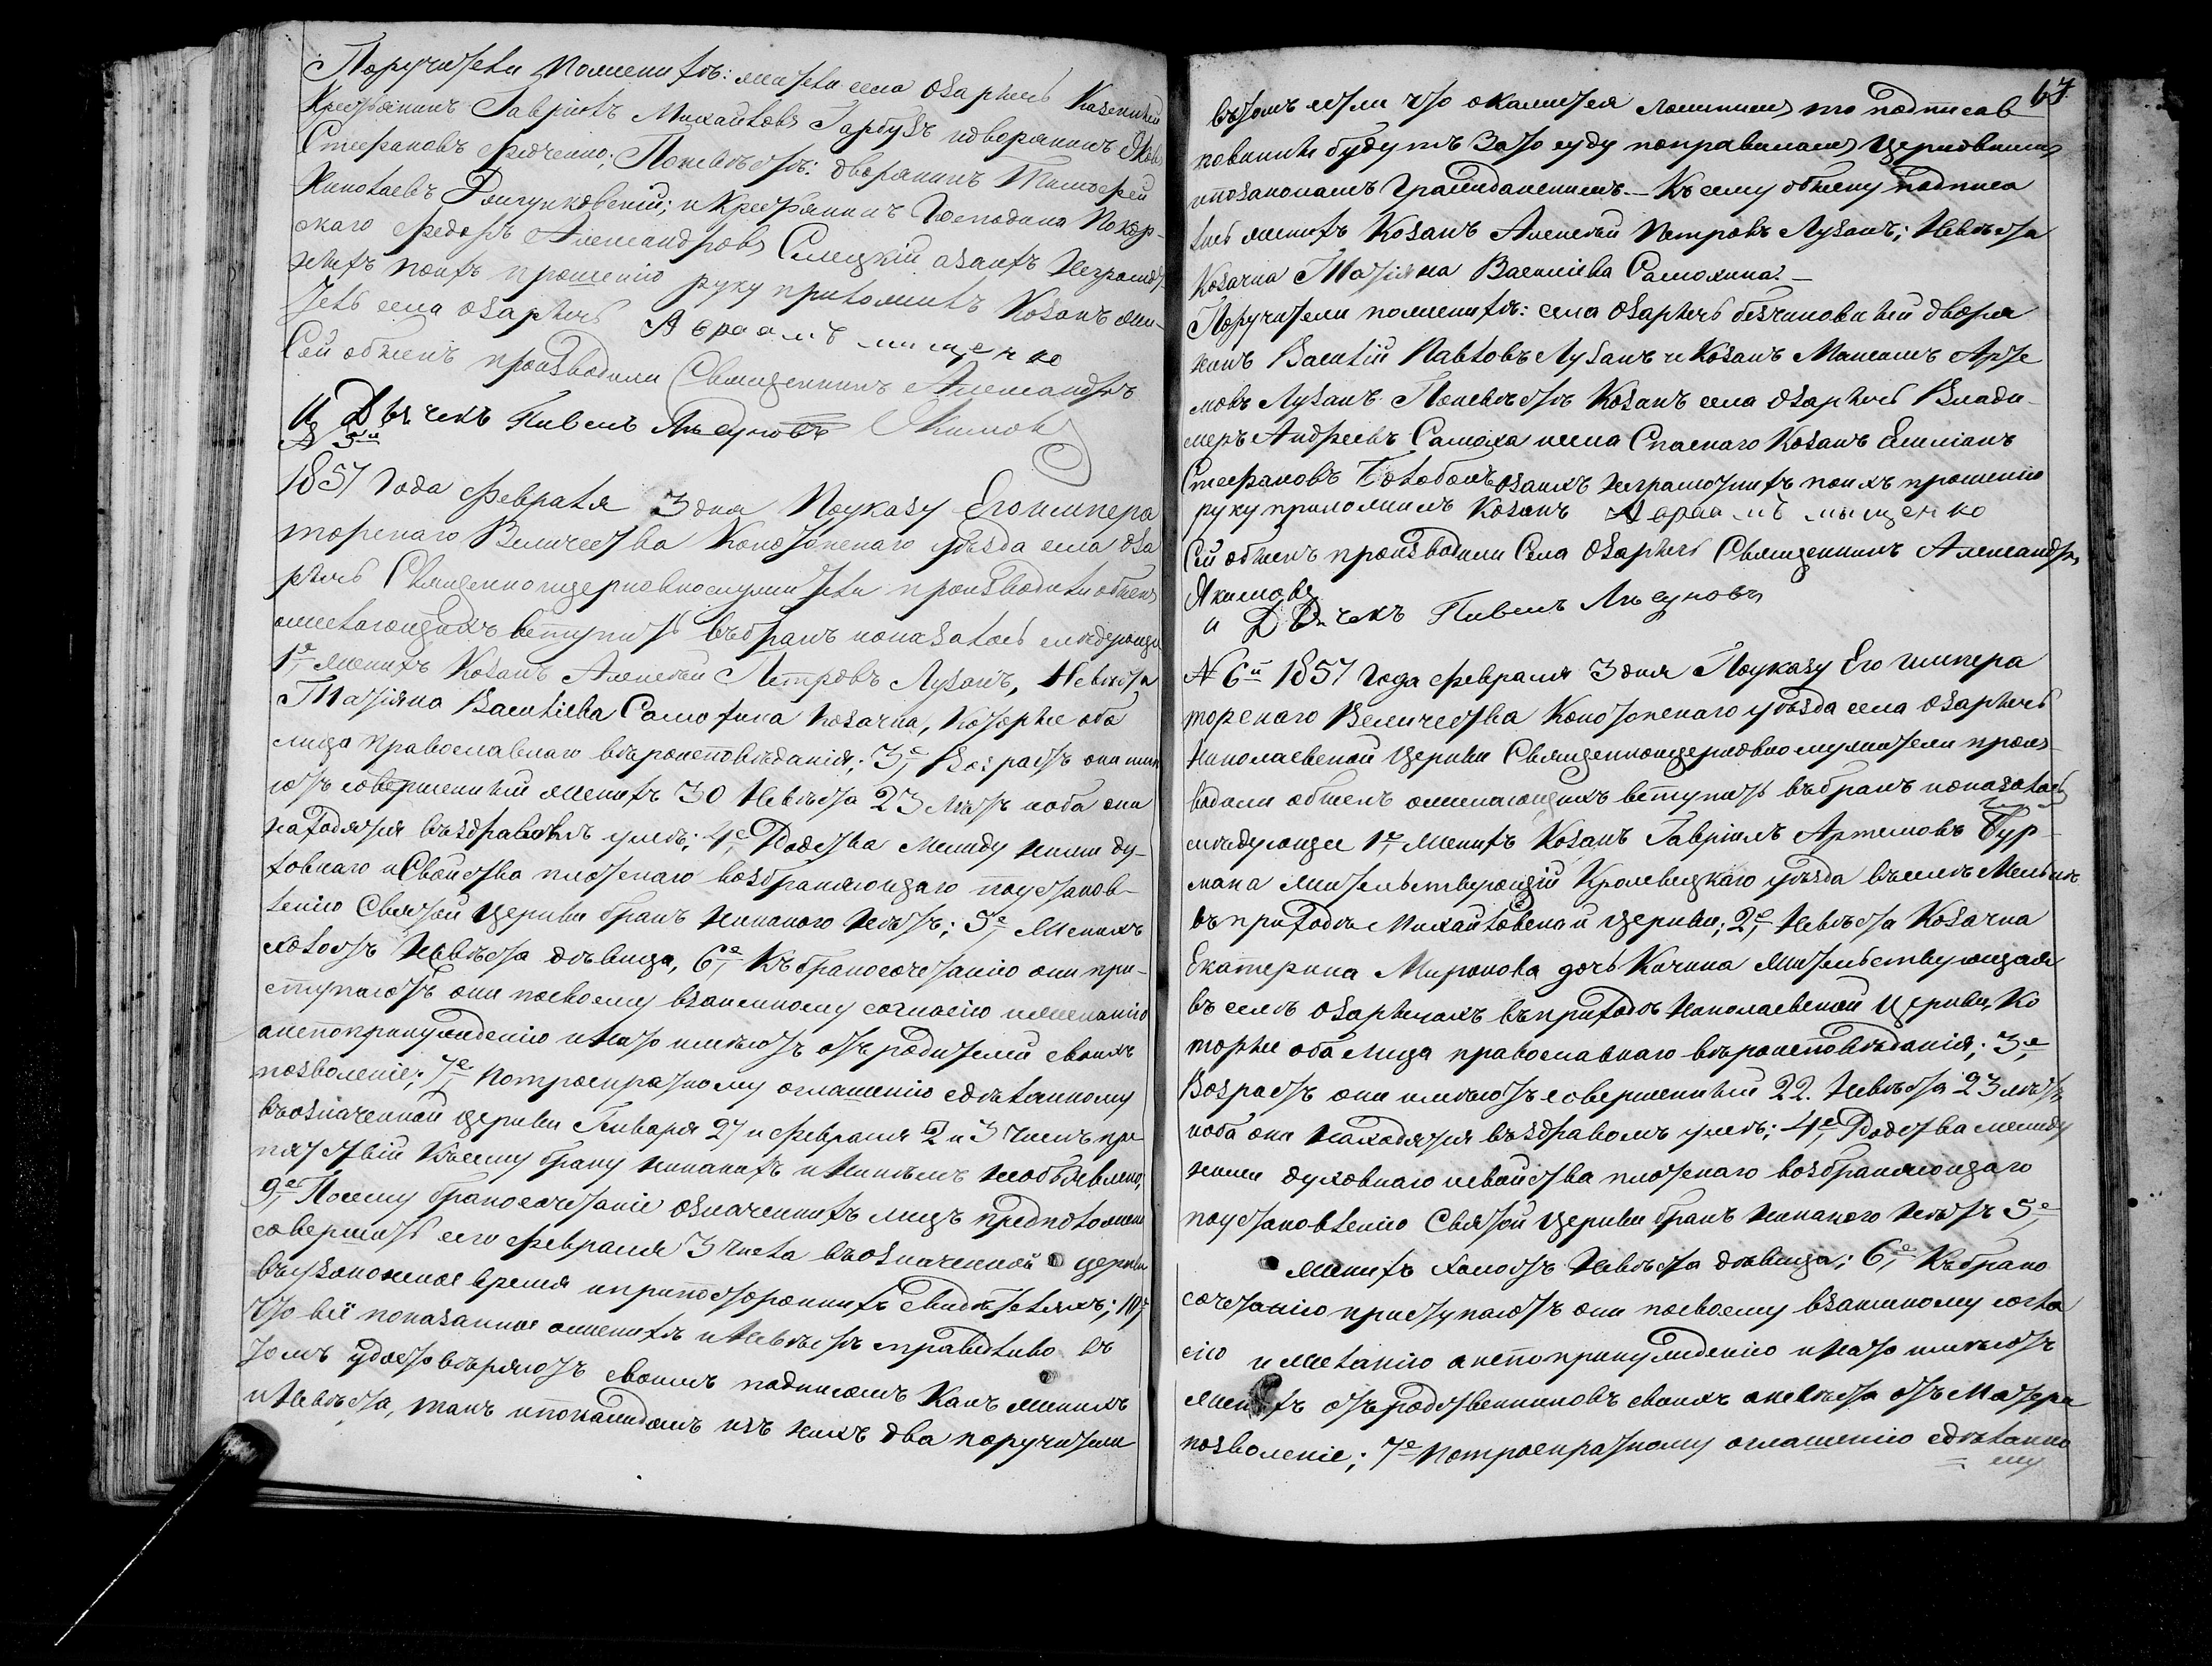 Поручители поженихѣ: жители села Озаричь Казенный
Крестьянинъ Гавріилъ Михайловъ Гарбузъ идворянинъ Яковъ
Стефановъ Федченко; Поневѣстѣ: дворянинъ Тимофей
Николаевъ ; и Крестьянинъ Господина Покор-
скаго Федоръ Александровъ Слецкій азанхъ Неграмот-
ныхъ поихъ прошенію руку приложилъ Козакъ жи-
тель села Озаричь Авраамъ мищенко
Сей обыскъ производили Священникъ Александръ
и Дьячекъ Пивель Якимовъ
№ 5й
1857 Года Февраля 3 дня Поуказу Его импера
торскаго Величества Конотопскаго уѣзда села Оза
ричь Священноицерковнослужители производили обыскъ
ожелающихъ вступить вбракъ ипоказалось слѣдующее
1е, женихъ Козакъ Алексѣй Петровъ Лузанъ, Невѣста
Татіяна Василіева Самохина Козачка, Которые оба
лица православнаго вѣроисповѣданія; 3е, Возрастъ они имѣ
ютъ совершенный женихъ 30 Невѣста 23 лѣтъ иоба они
находятся въздравомъ умѣ; 4е, Родства Между ними ду-
ховнаго иСвойства плотскаго возбраняющаго поустанов-
ленію Святой Церкви бракъ никакого Нѣтъ; 5е, Женихъ
холостъ Невѣста дѣвица, 6е, Къ бракосочетанію они при-
ступаютъ они посвоему взаимному согласію ижеланію
анепопринужденію и Нато имѣютъ отъ родителей своихъ
позволеніе; 7е, потроекратному оглашенію сдѣланному
въозначенной церкви Генваря 27 и Февраля 2 и 3 чиселъ пре-
пятствій Ксему браку никакихъ и Никѣмъ необъявлено,
9е, Посему бракосочетаніе означенныхъ лицъ предположено
совершить сего Февраля 3 числа въозначенной церкви
въузаконенное время иприпостороннихъ свидѣтеляхъ; 10,
что всё показанное оженихѣ и Невѣстѣ справедливо въ
томъ удостовѣряютъ своимъ подписомъ Какъ женихъ
и Невѣста, такъ ипокаждомъ изъ нихъ два поручители
67.
втомъ если что окажется ложнымъ то подписав
повинны будутъ Зато суду поправиламъ Церковнымъ
ипозаконамъ Гражданскимъ. — Къ сему обыску подписа
лись женихъ Козакъ Алексѣй Петровъ Лузанъ; Невѣста
Козачка Татіяна Василіева Самохина. —
Поручители поженихѣ: села Озаричь безчиновный дворя
нинъ Василій Павловъ Лузанъ и Козакъ Максимъ Арте
мовъ Лузанъ. Поневѣстѣ Козакъ села Озаричь Влади-
меръ Андреевъ Самоха исела Спаскаго Козакъ Емиліанъ
Стефановъ озанхъ неграмотныхъ поихъ прошенію
руку приложилъ Козакъ Авраамъ мыщенко
Сей обыскъ производили Села Озаричь Священникъ Александръ
Якимовъ
и Дьячекъ Пивель
№ 6й 1857 Года Февраля 3 дня Поуказу Его импера
торскаго Величества Конотопскаго уѣзда села Озаричь
Николаевской Церкви Священноицерковнослужители произ-
водили обыскъ ожелающихъ вступить вбракъ ипоказалось
слѣдующее 1е, Женихъ Козакъ Гавріилъ Артемовъ Бур-
мака жительствующій Кролевецкаго уѣзда въселѣ
въ приходѣ Михайловской церкви; 2е, Невѣста Козачка
Екатерина Миронова дочь Качина жительствующая
въ селѣ Озаричахъ въприходѣ Николаевской Церкви, Ко
торые оба лица православнаго вѣроисповѣданія; 3е,
Возрастъ они имѣютъ совершенный 22. Невѣста 23 лѣтъ,
иоба они Находятся въздравомъ умѣ; 4е, Родства между
ними духовнаго исвойства плотскаго возбраняющаго
поустановленію Святой Церкви бракъ никакого Нѣтъ 5е,
женихъ холостъ Невѣста дѣвица; 6е, Къ брако
сочетанію приступаютъ они посвоему взаимному согла
сію и желанію анепопринужденію и Нато имѣютъ
женихъ отъ родственниковъ своихъ аневѣста отъ Матери
позволеніе; 7е Потроекратному оглашенію сдѣланно
му